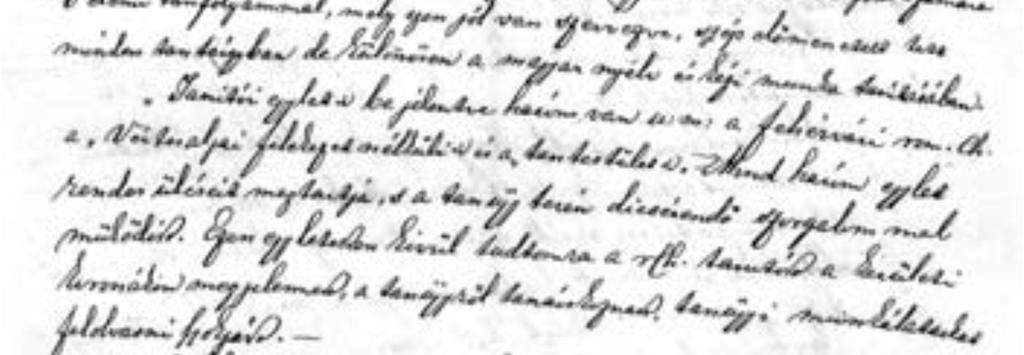 tanfolyammal, mely igen jól van szervezve, szép előmenetelt tesz
minden tantárgyban de különösen a magyar nyelv és kézi munka tanításában.
„Tanítói egylet" bejelentve három van u. m: a fehérvári rom. cth.
a „Vértesaljai felekezet nélküli" és a „tantestület". Mind három egylet
rendes üléseit megtartja, s a tanügy terén dicsérendő szorgalommal
működik. Ezen egyleteken kivül tudtomra a rkth. tanítók a kerületi
koronákon megjelennek, a tanügyről tanácskoznak, tanügyi munkálatokat
felolvasni szokják. —